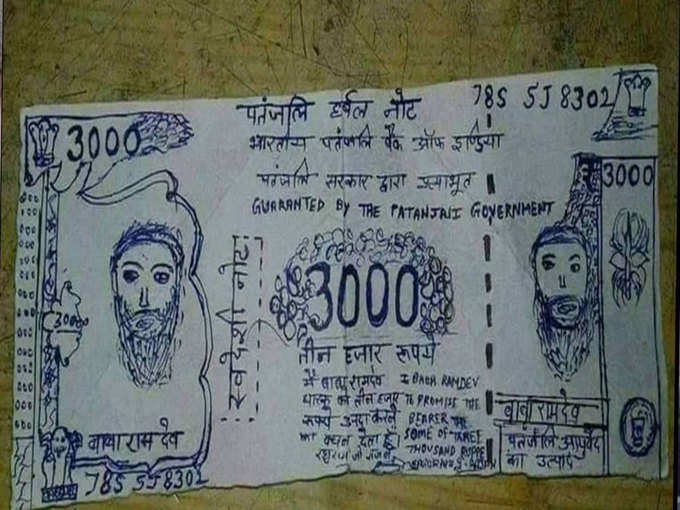 पतंजलि हर्बल नोट
785 5J 8302
3000
भारतीय पतंजलि बैंक ऑफ इण्डिया
पतंजलि सरकार द्वारा
GUARANTED BY THE PATANJALI GOVERNMENT
3000
स्वदेशी नोट
3000
3000
तीन हजार रूपये
मैं बाबा रामदेव
धारक को तीन हजार
रूपये अदा करने
का वचन देता हूँ
I BABA RAMDEV
TO PROMISE THE
BEARER THE
SOME OF THREE
THOUSAND RUPPE
बाबा राम देव
785 5J 8302
बाबा रामदेव
पतंजलि आयुर्वेद
का उत्पाद